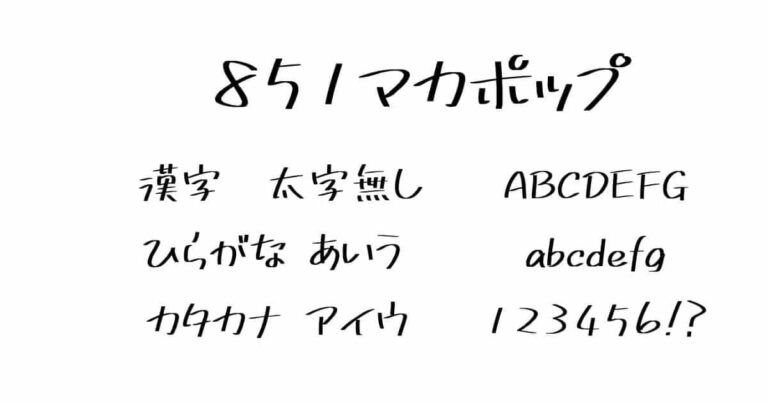 851マカポップ
漢字 太字無し ABCDEFG
ひらがな あいう abcdefg
カタカナ アイウ 123456!?